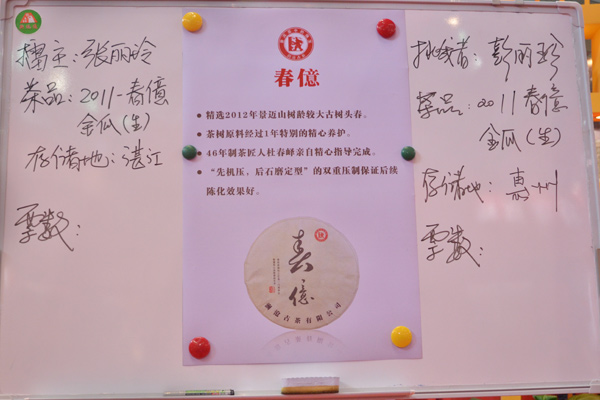 擂主：张丽玲
茶品：2011-春億
金瓜（生）
存储地：湛江
票数：
春億
● 精选2012年景迈山树龄较大古树头春。
● 茶树原料经过1年特别的精心养护。
● 46年制茶匠人杜春峄亲自精心指导完成。
● “先机压，后石磨定型”的双重压制保证后续
陈化效果好。
春億
澜沧古茶有限公司
挑战者：彭丽珍
茶品：2011春億
金瓜（生）
存储地：惠州
票数：